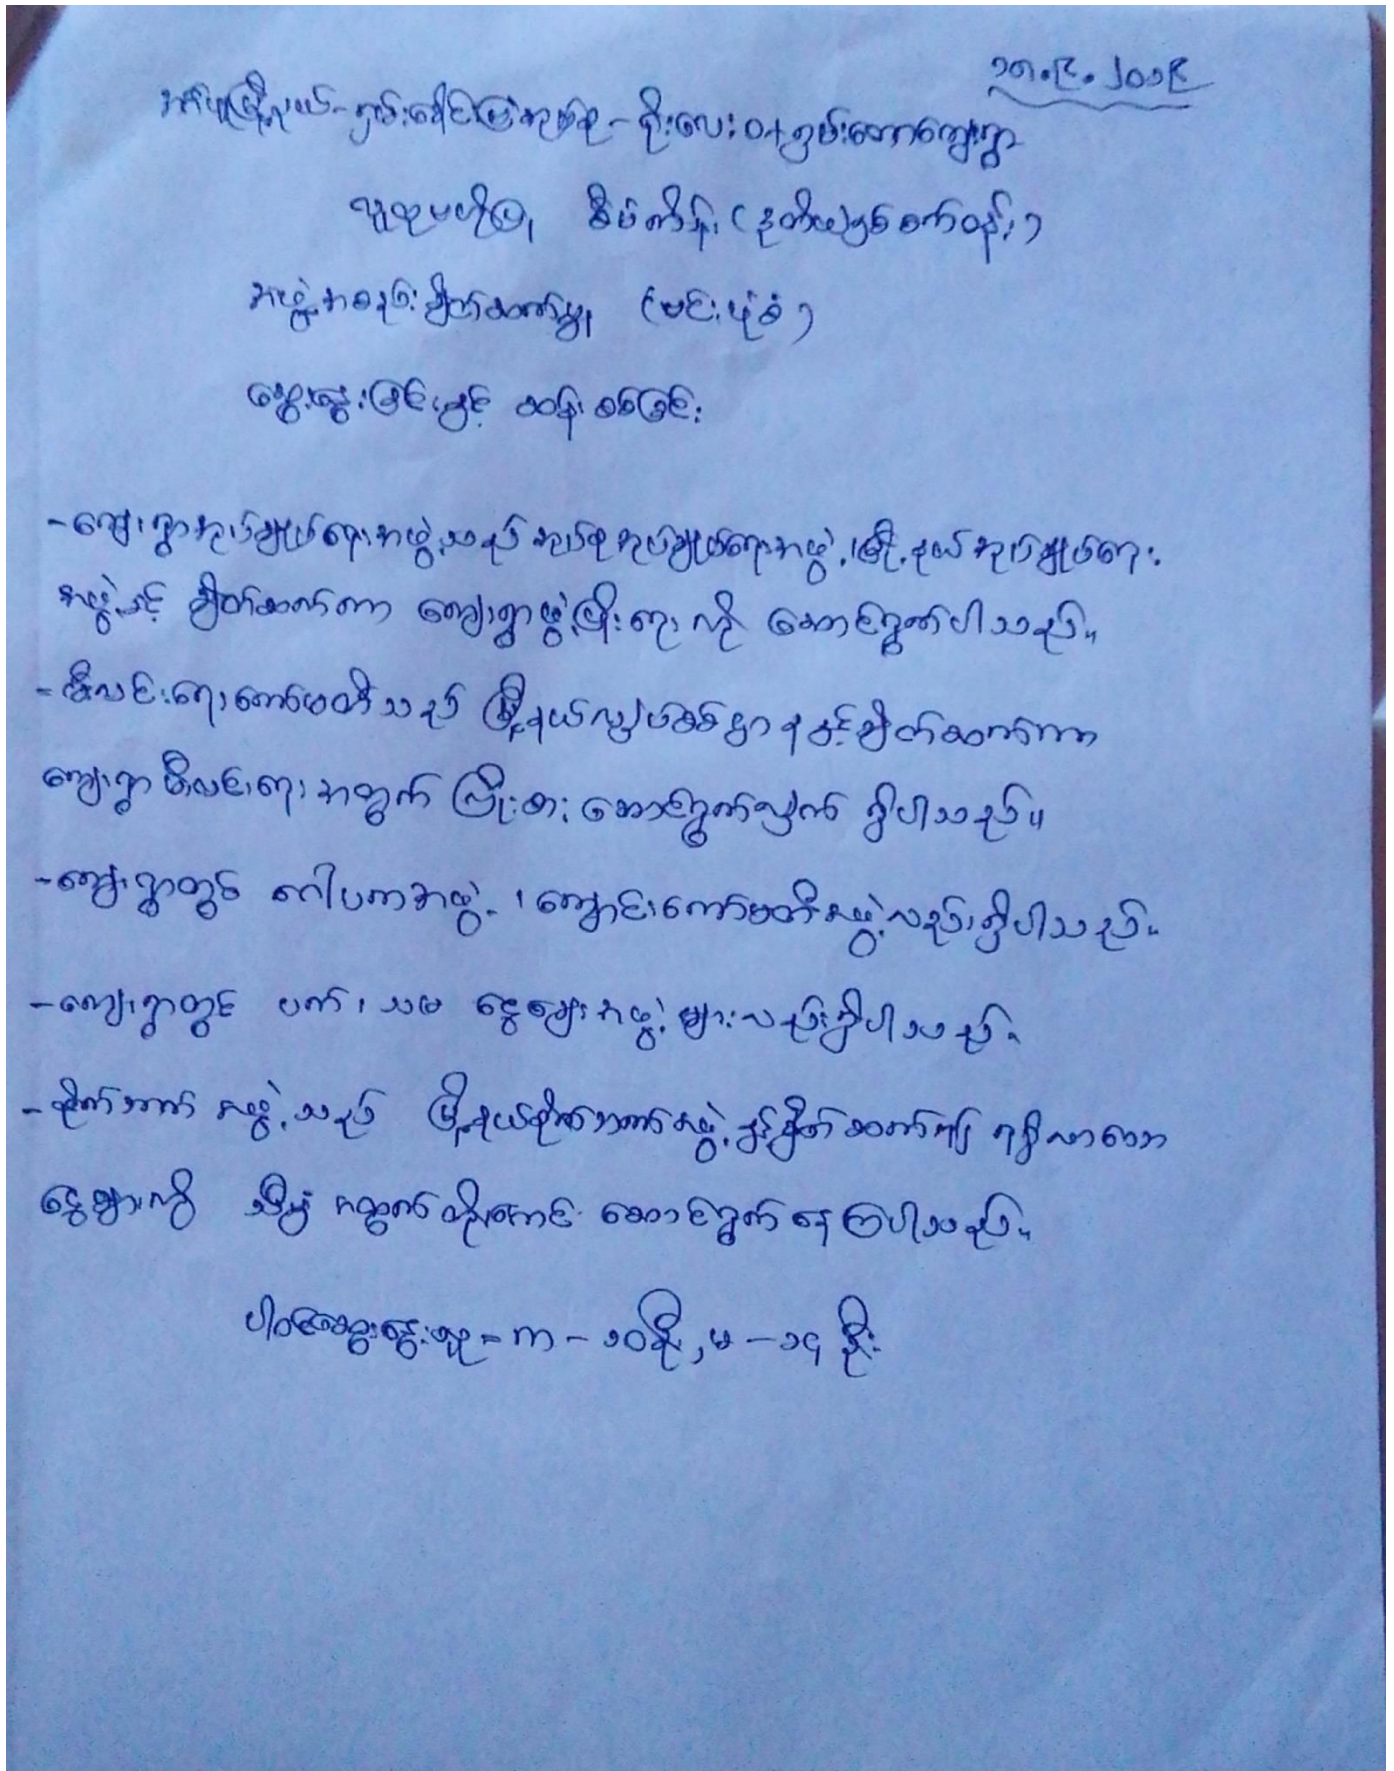 ၁၈.၉.၂၀၁၉
အင်းပူမြို့နယ် - ရှမ်းခေါင်မြဲအုပ်စု - စိုးလေးဝ + ရှမ်းတောကျေးရွာ
လူထုမဟိုပြု စီမံကိန်း (ဒုတိယနှစ်စက်ဝန်း)
အဖွဲ့အစည်းချိတ်ဆက်မှု (မင်းပုံစံ)
ဆွေးနွေးခြင်းနှင့် ဆန်းစစ်ခြင်း
- ကျေးရွာအုပ်ချုပ်ရေးအဖွဲ့သည် အုပ်စုအုပ်ချုပ်ရေးအဖွဲ့၊ မြို့နယ်အုပ်ချုပ်ရေး
အဖွဲ့နှင့် ချိတ်ဆက်ကာ ကျေးရွာဖွံ့ဖြိုးရေးကို ဆောင်ရွက်ပါသည်။
- မီးလင်းရေးကော်မတီသည် မြို့နယ်လျှပ်စစ်ဌာနနှင့်ချိတ်ဆက်ကာ
ကျေးရွာ မီးလင်းရေးအတွက် ကြိုးစားဆောင်ရွက်လျှက် ရှိပါသည်။
- ကျေးရွာတွင် ဂေါပကအဖွဲ့၊ ကျောင်းကော်မတီအဖွဲ့လည်းရှိပါသည်။
- ကျေးရွာတွင် ပက်၊ သမ ငွေချေးအဖွဲ့များလည်းရှိပါသည်။
- စိုက်ဘက်အဖွဲ့သည် မြို့နယ်စိုက်ဘက်အဖွဲ့နှင့်ချိတ်ဆက်၍ ရရှိလာသော
ငွေများကို သီးနှံအထွက်တိုးကောင်း ဆောင်ရွက်နေကြပါသည်။
ပါဝင်ဆွေးနွေးသူ = ကာ - ၁၀ ဦး, မ - ၁၄ ဦး